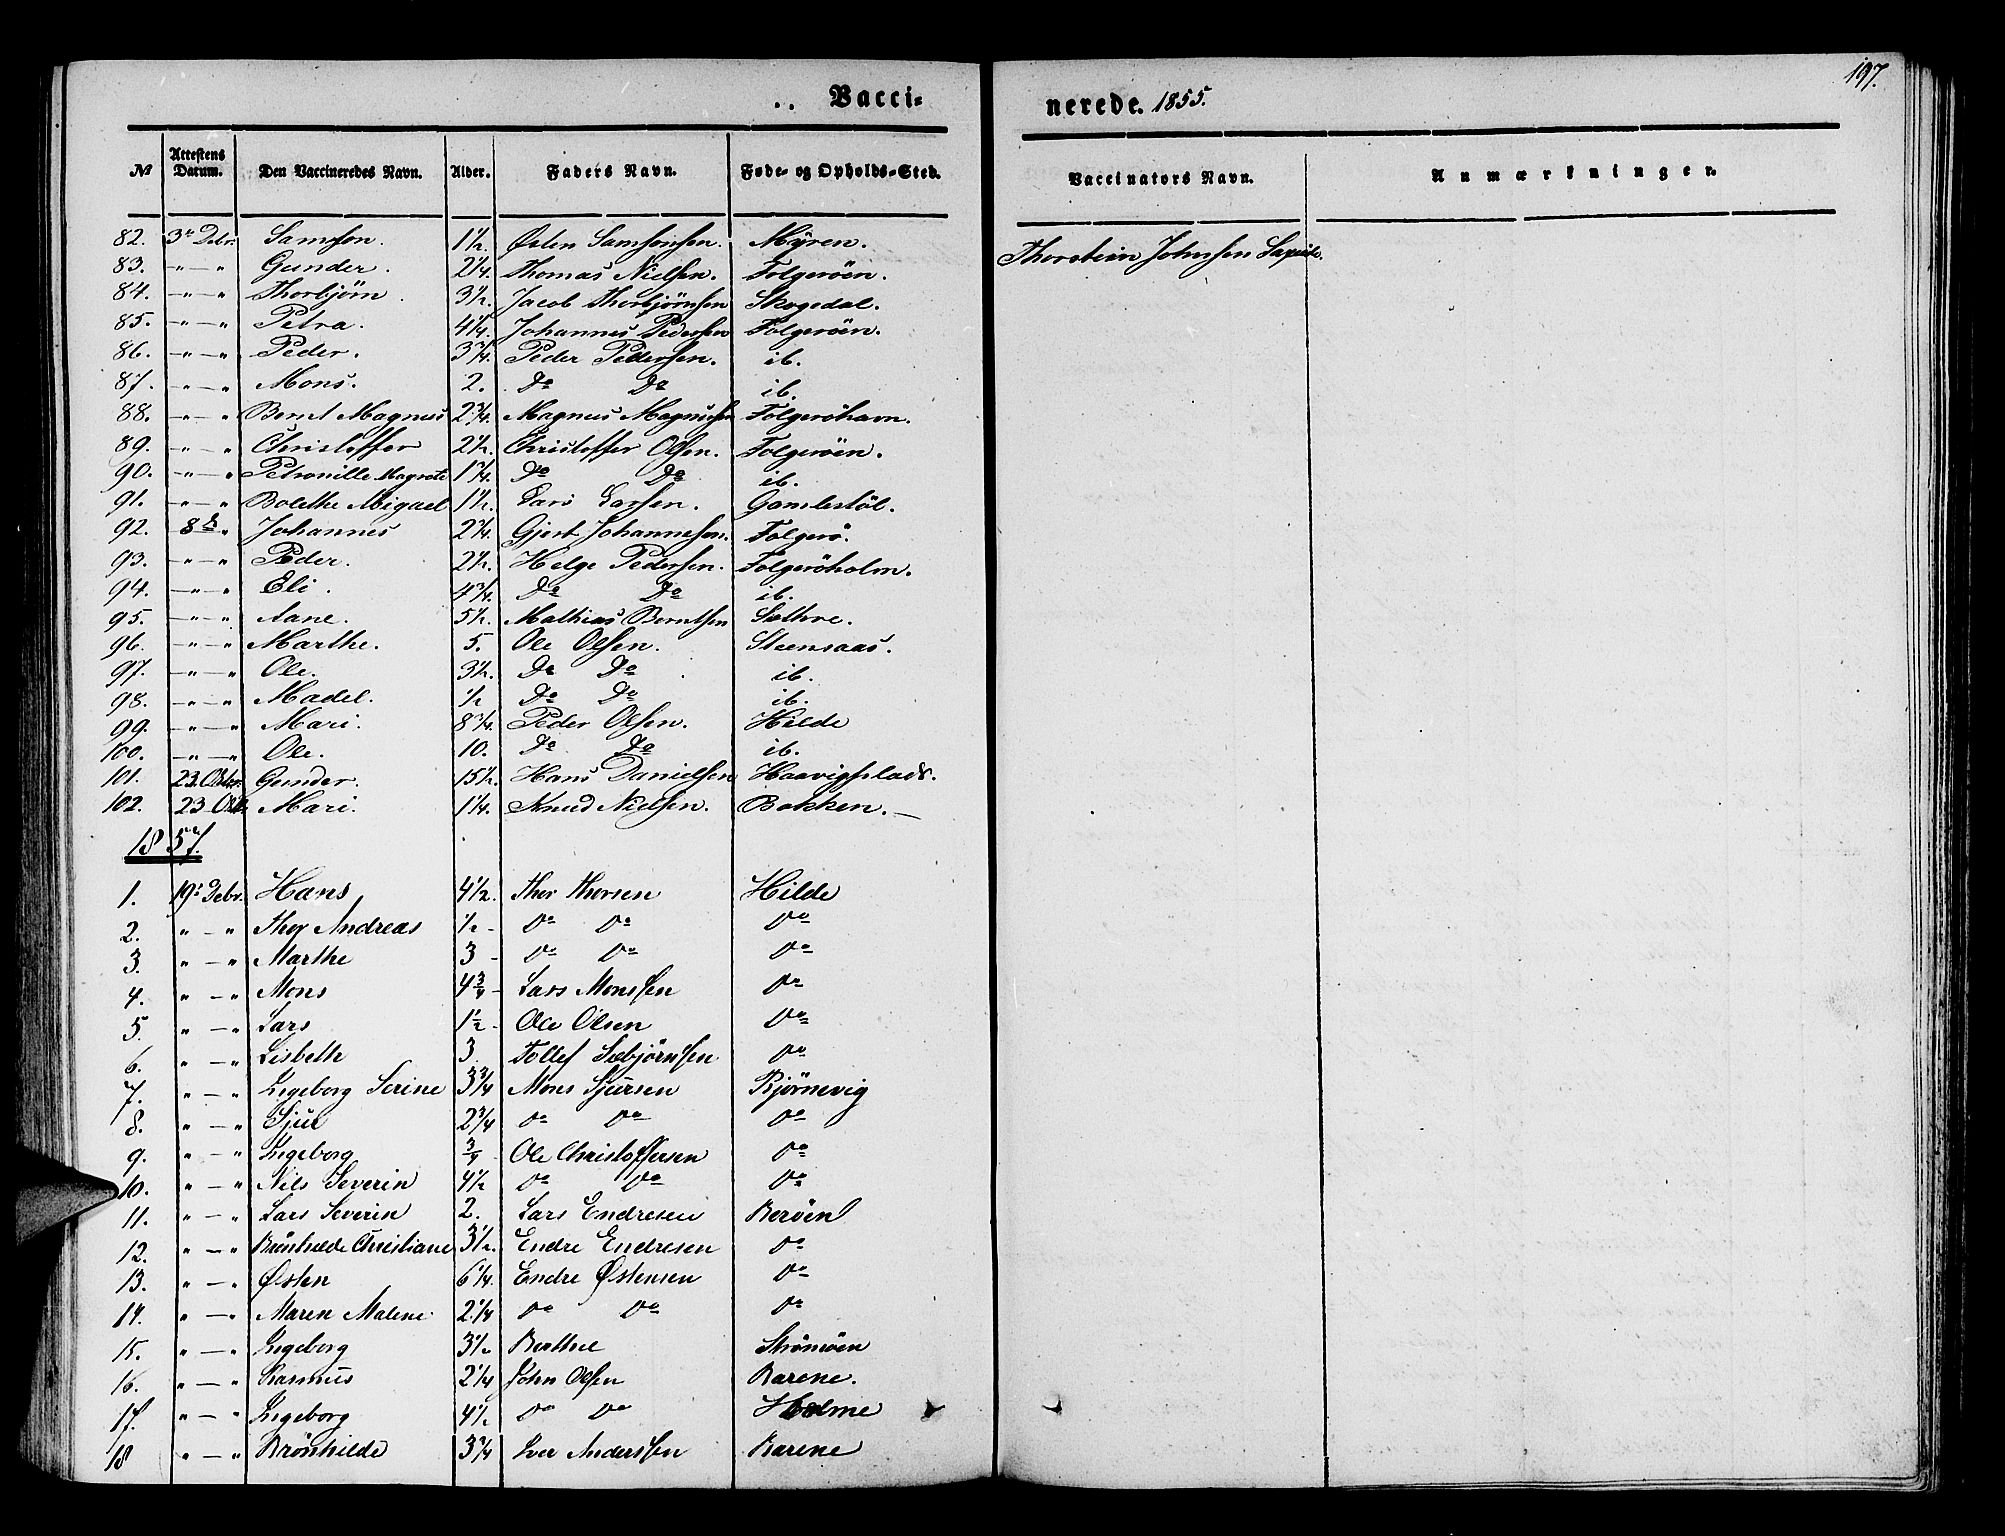 197.
Vacci- nerede. 1855.
№ Attestens Datum. Den Vaccineredes Navn. Alder. Faders Navn. Føde- og Opholds-Sted. Vaccinators Navn. Anmærkninger.
82. 3e Debr. Samson. 1½. Østen Samsonsen. Myren. Thorstein Johnsen
83. " — " Gunder. 2¼. Thomas Nielsen. Folgerøen.
84. " — " Thorbjørn. 3½. Jacob Thorbjørnsen Skogedal.
85. " — " Petra. 4¼. Johannes Pedersen Folgerøen.
86. " — " Peder. 3¾. Peder Pedersen. ib.
87. " — " Mons. 2. Do Do ib.
88. " — " Bernt Magnus 2¾. Magnus Magnussen Folgerøhavn.
89. " — " Christoffer 2½. Christoffer Olsen. Folgerøen.
90. " — " Petronille Magrete 1¾. Do Do ib.
91. " — " Bolethe Migael 1½. Lars Larsen. Gamlestöl.
92. 8de " Johannes 2¼. Gjert Johannesen. Folgerö.
93. " — " Peder. 2½. Helge Pedersen. Folgeröholm.
94. " — " Eli. 4¾. Do Do ib.
95. " — " Aane. 5½. Mathias Berntsen Sæthre.
96. " — " Marthe. 5. Ole Olsen. Steensaas.
97. " — " Ole. 3½. Do Do ib.
98. " — " Madel. ½ Do Do ib.
99. " — " Mari. 8¾. Peder Olsen. Hilde
100. " — " Ole. 10. Do Do ib.
101. 23. Octbr. Gunder. 15½. Hans Danielsen Haavigsplads.
102. 23 Oct. Mari. 1¼. Knud Nielsen. Bakken. —
1857.
1. 19: Debr. Hans 4½. Thor Thorsen Hilde
2. " — " Thor Andreas ½ - Do Do Do
3. " — " Marthe 3 - Do Do Do
4. " — " Mons 4¾ - Lars Monssen Do
5. " — " Lars 1½ - Ole Olsen Do
6. " — " Lisbeth 3. Tollef Sæbjørnsen Do
7. " — " Ingeborg Serine 3¾ Mons Sjursen Bjørnevig
8. " — " Sjur 2¾ Do Do Do
9. " — " Ingeborg ¾ - Ole Christoffersen Do
10. " — " Nils Severin 4½ Do Do Do
11. " — " Lars Severin 2. Lars Endresen Berøen
12. " — " Brønhilde Christiane 3½. Endre Endresen Do
13. " — " Østen 6¼. Endre Østensen Do
14. " — " Maren Malene 2¼ Do Do Do
15. " — " Ingeborg 3½ Berthel Strömöen
16. " — " Rasmus 2¼ John Olsen Barene.
17. " — " Ingeborg 4½ Do Do Holme
18 " — " Brönhilde 3¾ Iver Anderssen Barene